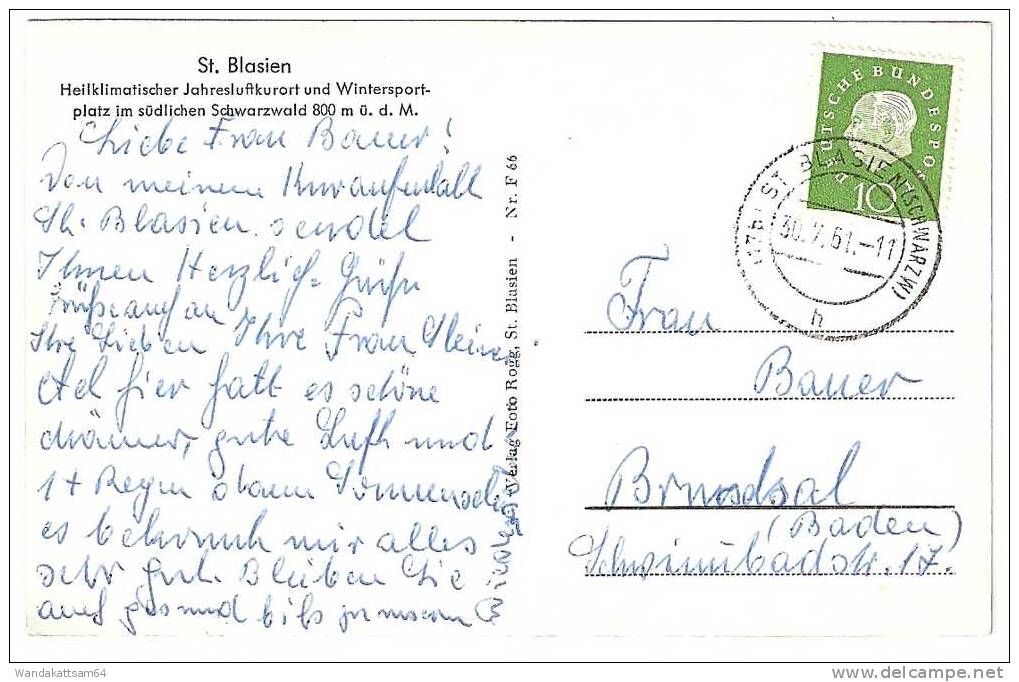 St. Blasien
Heilklimatischer Jahresluftkurort und Wintersport-
platz im südlichen Schwarzwald 800 m ü. d. M.
Liebe Frau Bauer!
Von meinem Kuraufenthalt
St. Blasien sendet
Ihnen Herzlich. Grüße
Grüße auch an
Ihre Lieben Ihre Frau
hier hatt es schöne
gute Luft und
Regen
es bekommt mir alles
sehr gut. Bleiben Sie
auch gesund bis zu unserem
Verlag Foto Rogg, St. Blasien - Nr. F 66
DEUTSCHE BUNDESPOST
10
ST. BLASIEN (SCHWARZW)
30.7.61.-11
h
Frau
Bauer
Bruchsal
(Baden)
Schwimmbadstr. 17.
Wandakattsam64
delcampe.net